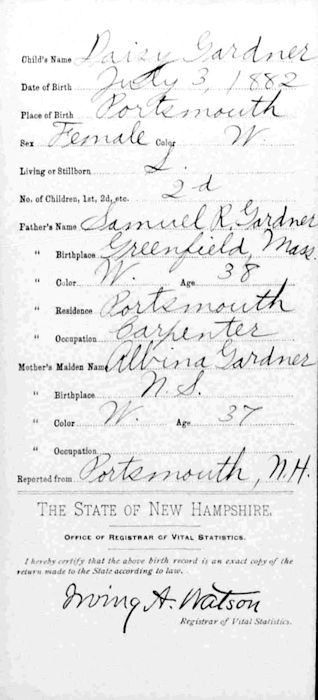 Child's Name Daisy Gardner
Date of Birth July 3, 1882
Place of Birth Portsmouth
Sex Female Color W.
Living or Stillborn L.
No. of Children, 1st, 2d, etc. 2d
Father's Name Samuel R. Gardner
" Birthplace Greenfield, Mass.
" Color W. Age 38
" Residence Portsmouth
" Occupation Carpenter
Mother's Maiden Name Albina Gardner
" Birthplace N.S.
" Color W. Age 37
" Occupation
Reported from Portsmouth, N.H.
THE STATE OF NEW HAMPSHIRE.
OFFICE OF REGISTRAR OF VITAL STATISTICS.
I hereby certify that the above birth record is an exact copy of the
return made to the State according to law.
Irving A. Watson
Registrar of Vital Statistics.